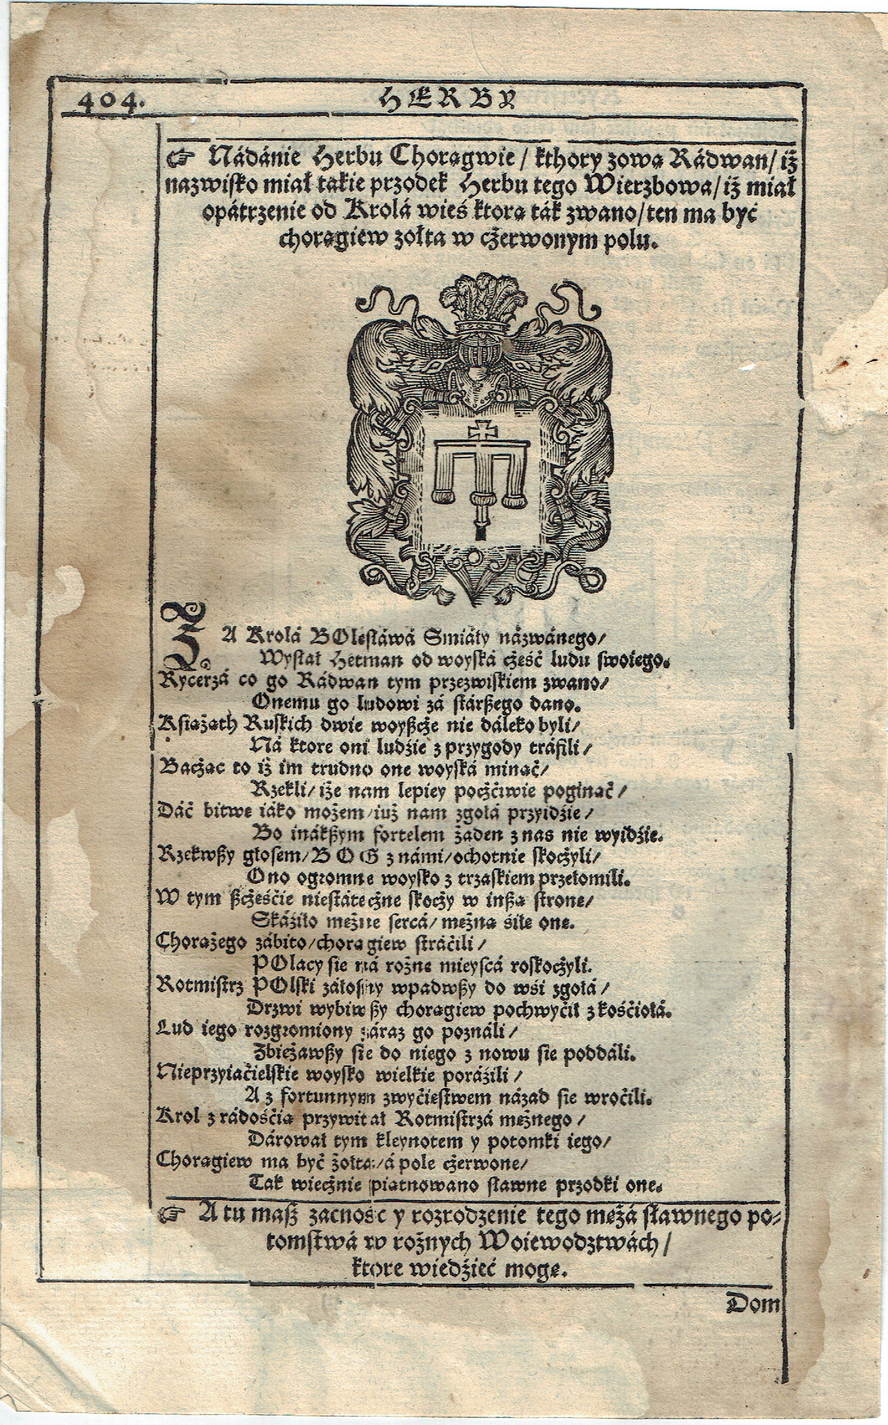 404.
HERBY
☞ Nádánie Herbu Chorągwie / kthory zową Rádwan / iż
nazwisko miał takie przodek Herbu tego Wierzbowa / iż miał
opátrzenie od Krolá wieś ktorą ták zwano / ten ma być
chorągiew żołta w cżerwonym polu.
ZA Krolá BOlesłáwá Smiáły názwánego /
Wysłał Hetman od woyská cżęść ludu swoiego.
Rycerzá co go Rádwan tym przezwiskiem zwano /
Onemu go ludowi zá stárßego dano.
Książąth Ruskich dwie woyßcże nie dáleko byli /
Ná ktore oni ludzie z przygody tráfili /
Bacżąc to iż im trudno one woyská minąć /
Rzekli / iże nam lepiey pocżćiwie poginąć /
Dáć bitwę iáko możem / iuż nam zgołá przyidzie /
Bo inákßym fortelem żaden z nas nie wyidźie.
Rzekwßy głosem / BOG z námi / ochotnie skocżyli /
Ono ogromne woysko z trzaskiem przełomili.
W tym ßcżęśćie niestátecżne skocży w inßą stronę /
Skáźiło mężne sercá / mężną śiłę onę.
Chorążego zábito / chorągiew stráćili /
POlacy się ná rożne mieyscá roskocżyli.
Rotmistrz POlski záłosny wpadwßy do wśi zgołá /
Drzwi wybiwßy chorągiew pochwyćił z kośćiołá.
Lud iego rozgromiony záraz go poználi /
Zbieżawßy się do niego z nowu się poddáli.
Nieprzyiaćielskie woysko wielkie poráźili /
A z fortunnym zwyćięstwem názad się wroćili.
Krol z rádośćią przywitał Rotmistrzá mężnego /
Dárował tym kleynotem y potomki iego /
Chorągiew ma być żołta / á pole cżerwone /
Tak wiecżnie piątnowano sławne przodki one.
☞ A tu maß zacność y rozrodzenie tego mężá sławnego po⸗
tomstwá w rożnych Woiewodztwách /
ktore wiedźieć mogę.
Dom